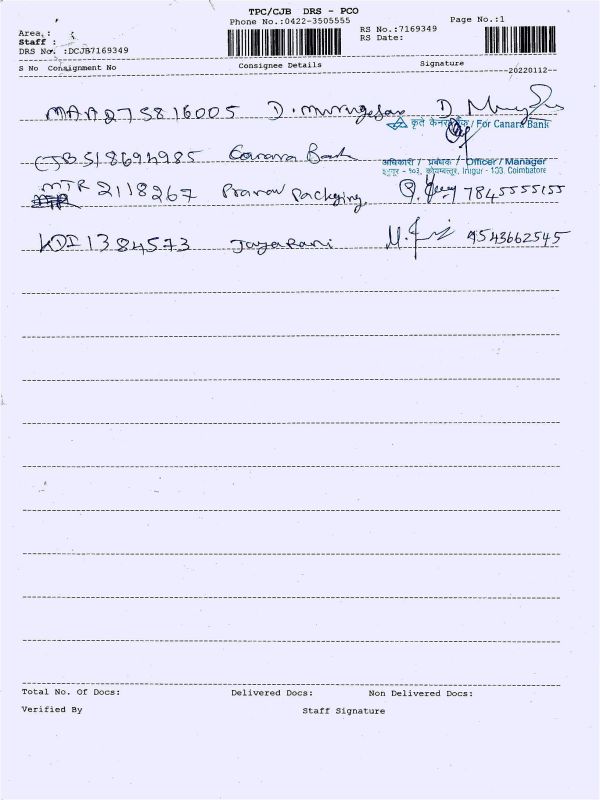 TPC/CJB DRS - PCO
Phone No.:0422-3505555 Page No.:1
Area :
Staff :
RS No.:7169349
RS Date:
DRS No. :DCJB7169349
S No Consignment No Consignee Details Signature
--20220112--
MAA275816005 D. Murugesan
कृते केनरा बैंक / For Canara Bank
CJB518694985 Canara Bank
अधिकारी / प्रबंधक / Officer / Manager
इरुगूर - 103, कोयम्बत्तूर, Irugur - 103. Coimbatore
MTR 2118267 Pranav Packaging 7845555155
KDI1384573 Jayarani 9543662545
Total No. Of Docs: Delivered Docs: Non Delivered Docs:
Verified By Staff Signature